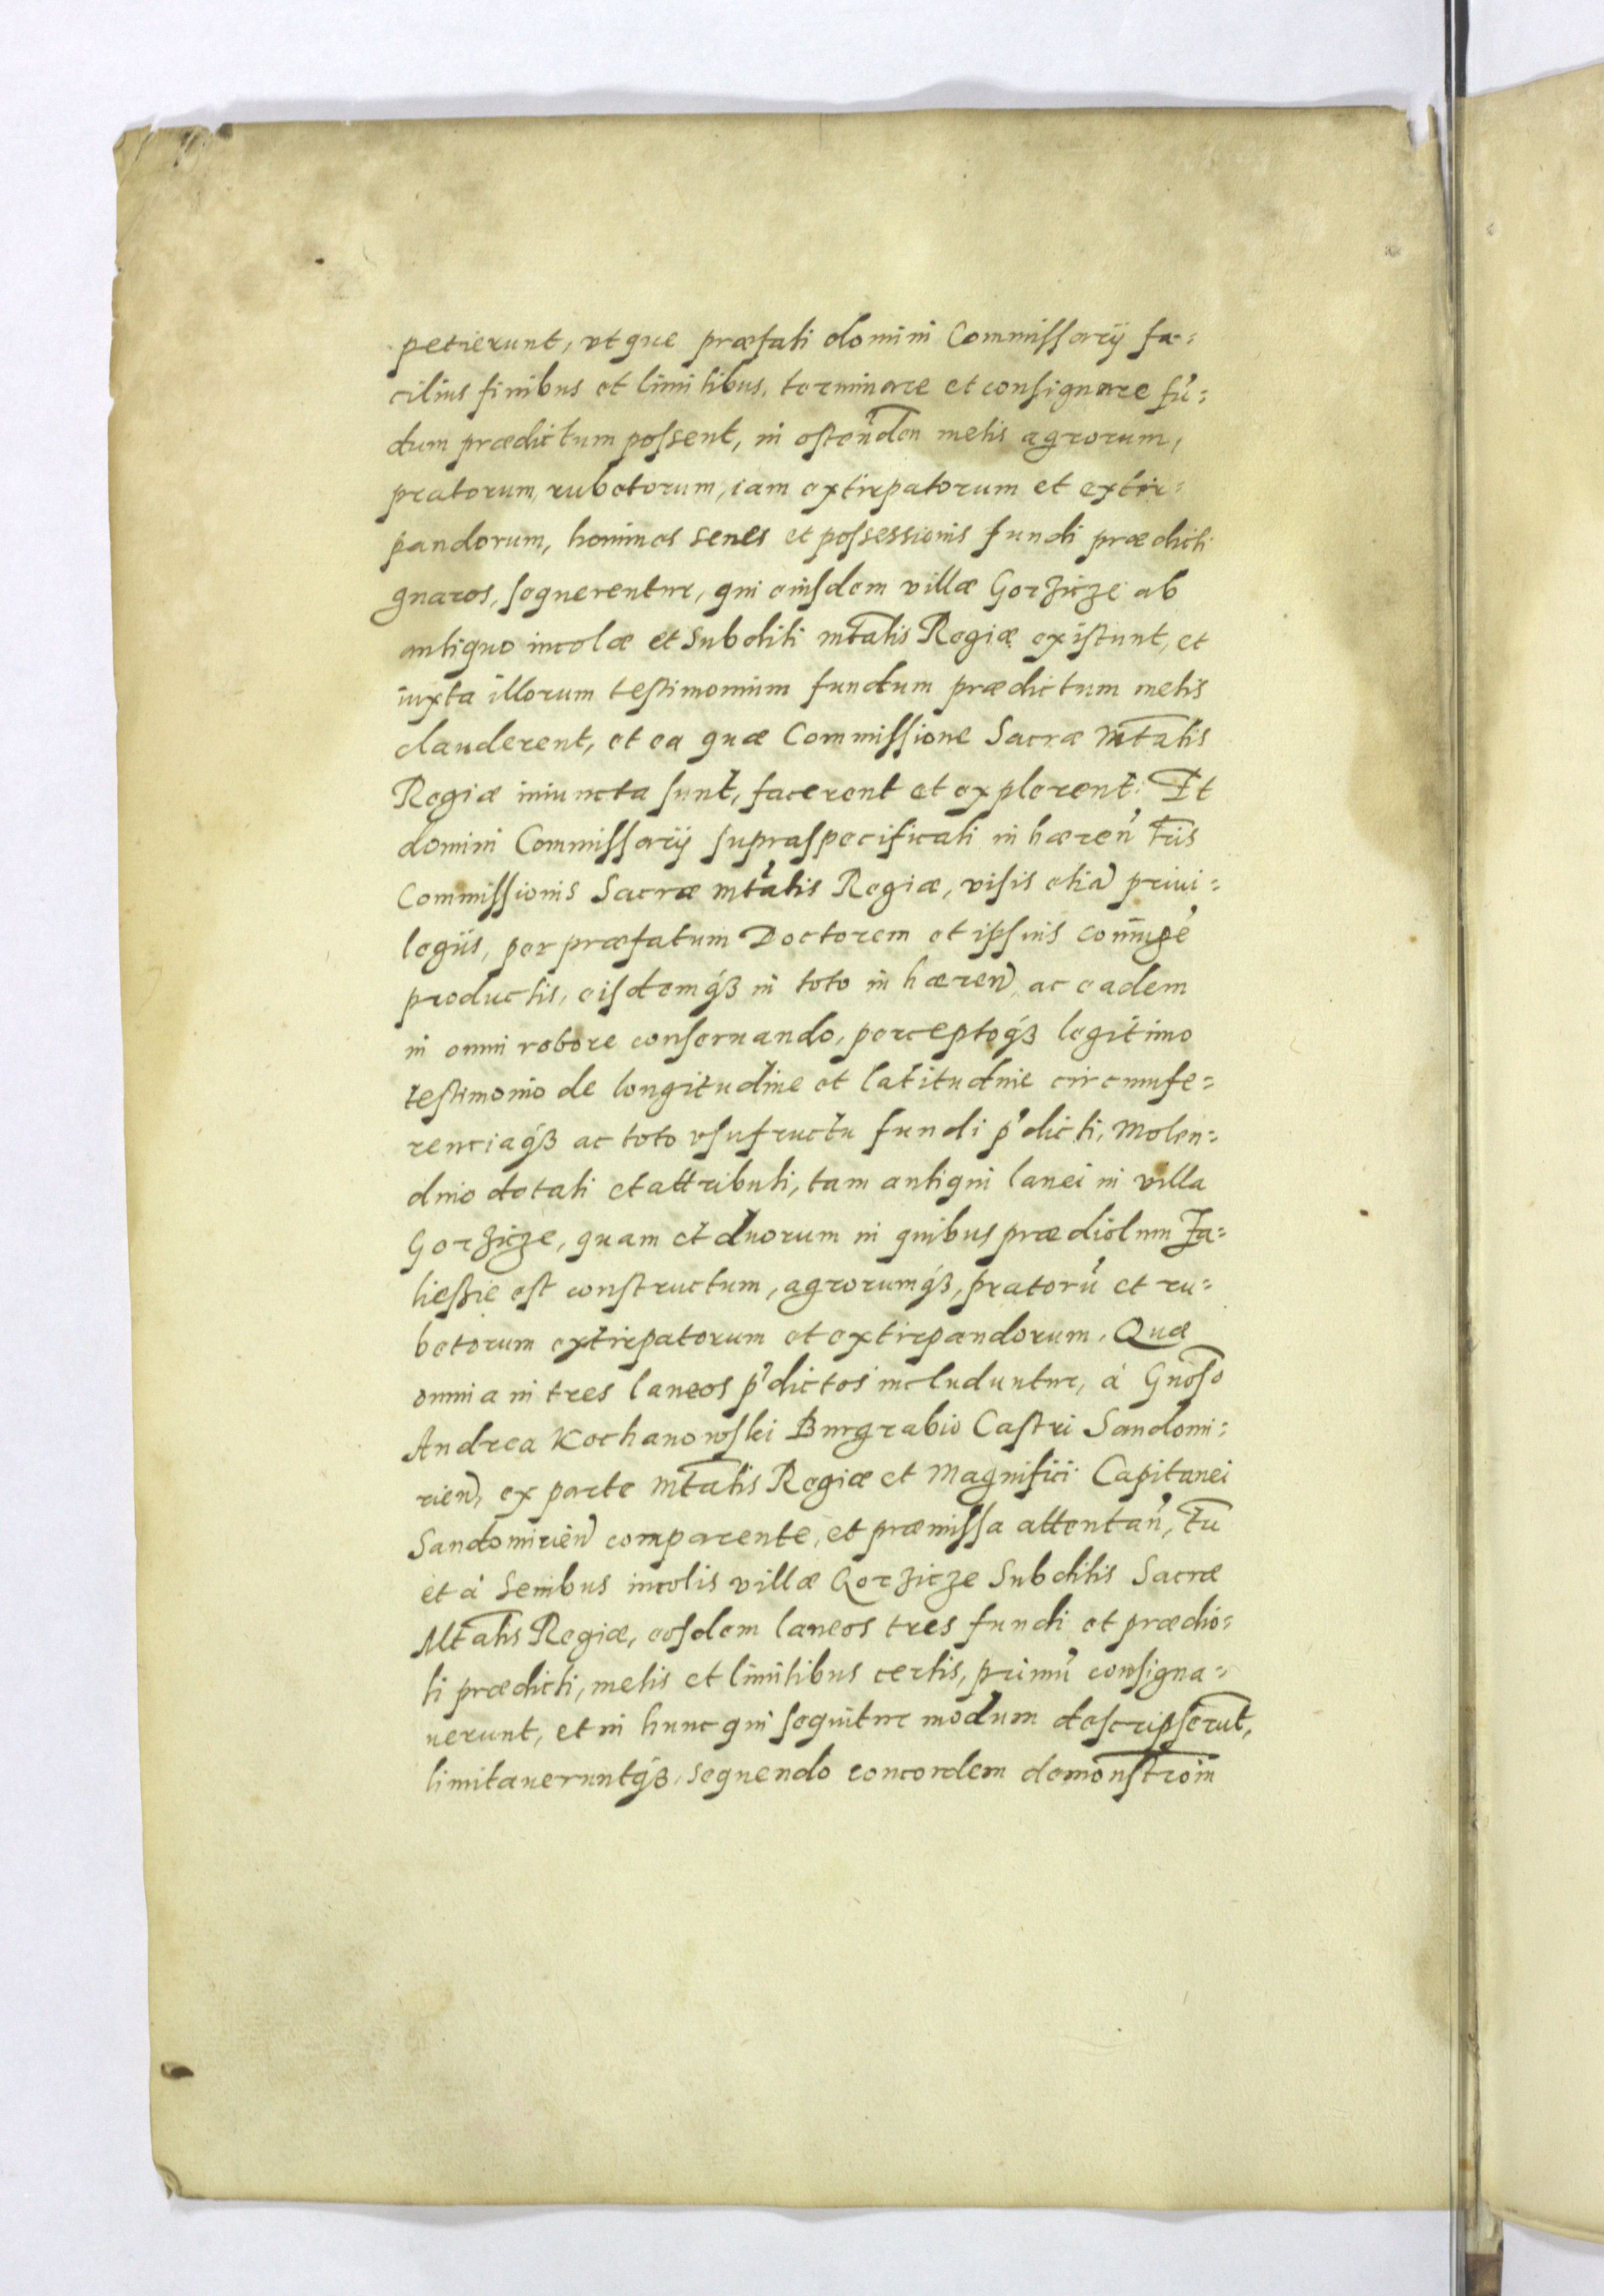 petierunt, vtque præfati domini Commissarij fa=
cilius finibus et limitibus, terminare et consignare fũ=
dum prædictum possent, in ostenden metis agrorum,
pratorum, rubetorum, iam extirpatorum et extir=
pandorum, homines senes et possessionis fundi prædicti
gnaros, sequerentur, qui eiusdem villæ Gorzicze ab
antiquo incolæ et Subditi mtatis Regiæ existunt, et
iuxta illorum testimonium fundum prædictum metis
clauderent, et ea quæ Commissione Sacræ Mtatis
Regiæ iniuncta sunt, facerent et explerent. Et
domini Commissarij supraspecificati inhæreñ tris
Commissionis Sacræ mtatis Regiæ, visis etiã priui=
legiis, per præfatum Doctorem et ipsius coniugẽ
productis, eisdemqꝫ in toto inhæreñ, ac eadem
in omni robore conseruando, perceptoqꝫ legitimo
testimonio de longitudine et latitudine circumfe=
renciaqꝫ ac toto vsufructu fundi p̃dicti, Molen=
dino dotati et attributi, tam antiqui lanei in villa
Gorzicze, quam et duorum in quibus prædiolum Za=
liessie est constructum, agrorumqꝫ, pratorũ et ru=
betorum extirpatorum et extirpandorum. Quæ
omnia in tres laneos p̃dictos includuntur, à Gnoso
Andrea Kochanowski Burgrabio Castri Sandomi=
rieñ, ex parte Mtatis Regiæ et Magnifici Capitanei
Sandomirieñ comparente, et præmissa attentañ, tũ
et à Senibus incolis villæ Gorzicze Subditis Sacræ
Mtatis Regiæ, eosdem laneos tres fundi et prædio=
li prædicti, metis et limitibus certis, primũ consigna=
uerunt, et in hunc qui sequitur modum descripserũt,
limitaueruntqꝫ, sequendo concordem demonstrõin